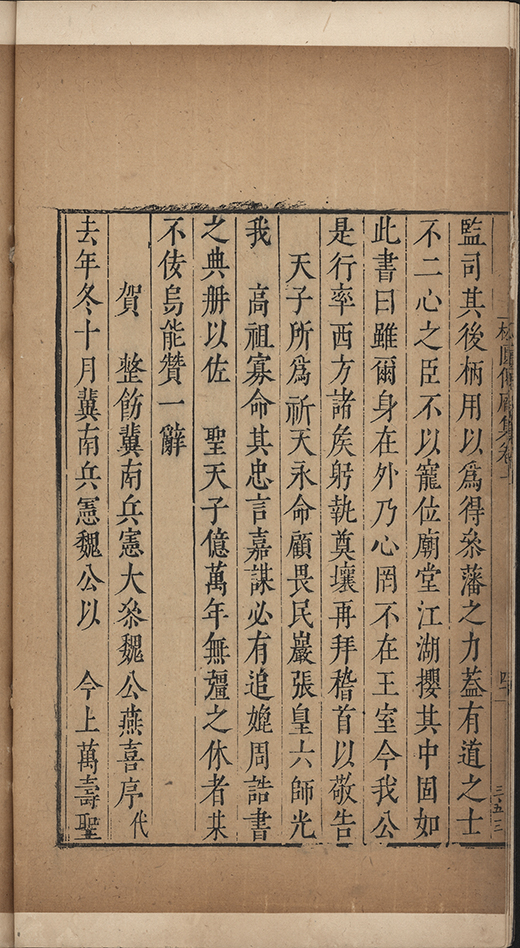 監司其後柄用以爲得叅藩之力蓋有道之士
不二心之臣不以寵位廟堂江湖攖其中固如
此書曰雖爾身在外乃心罔不在王室今我公
是行率西方諸矦躬執奠壤再拜稽首以敬告
天子所爲祈天永命顧畏民巖張皇六師光
我　高祖寡命其忠言嘉謀必有追媲周誥書
之典册以佐　聖天子億萬年無疆之休者某
不佞烏能贊一辭
賀　整飭冀南兵憲大叅魏公燕喜序代
去年冬十月冀南兵憲魏公以　今上萬壽聖
三五三